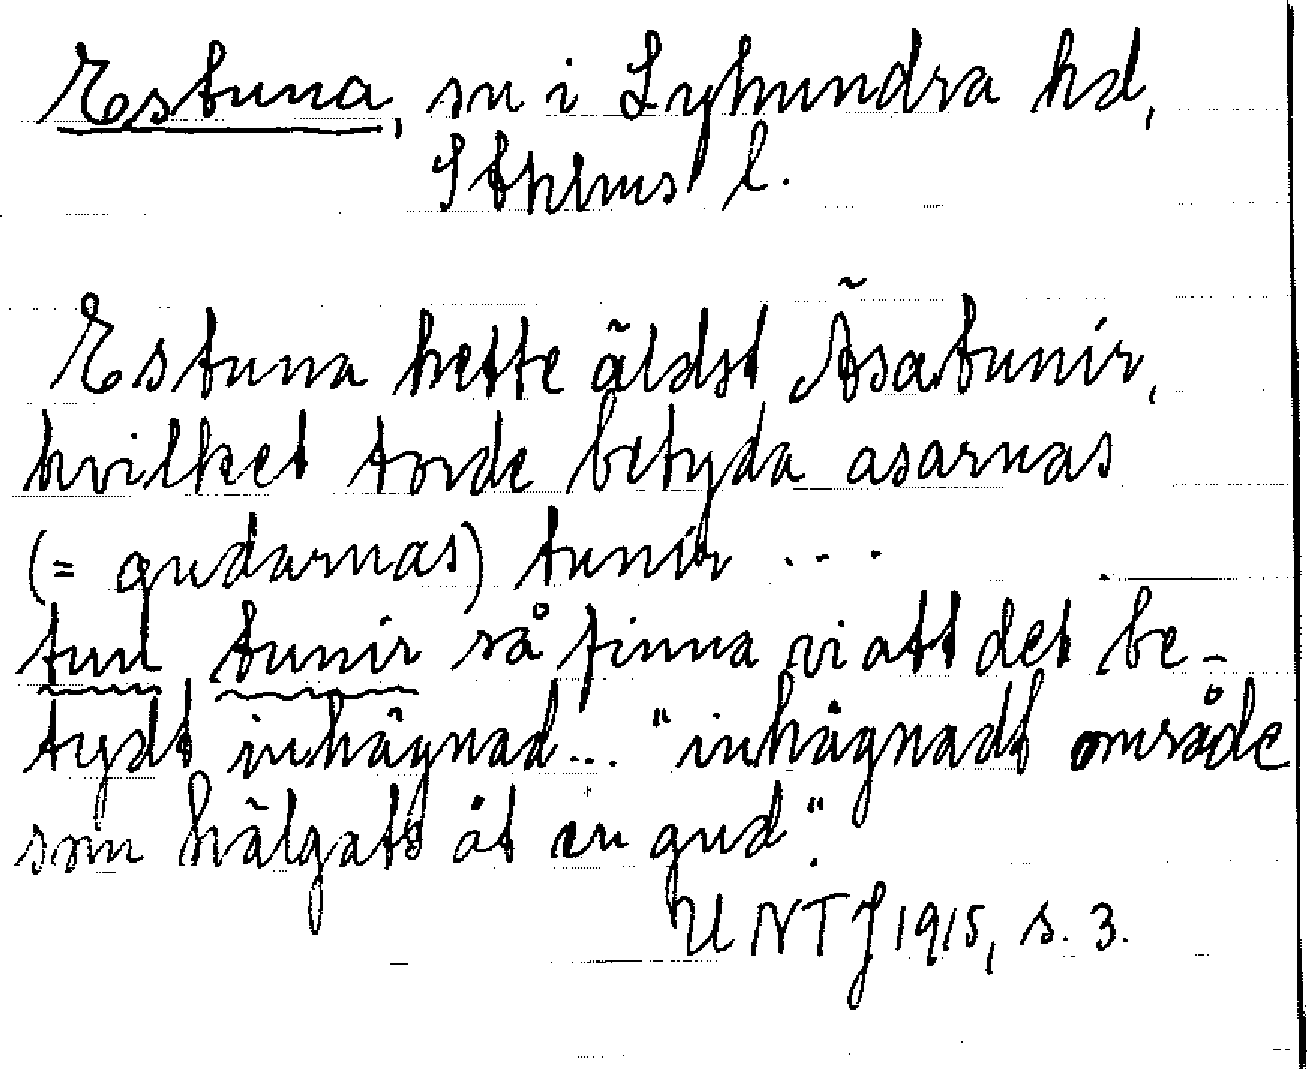 Estuna, sn i Lyhundra hd,
Sthlms l.
Estuna hette äldst Āsatunir,
hvilket torde betyda asarnas
(= gudarnas) tunir ...
tun tunir så finna vi att det be-
tydt inhägnad... "inhägnadt område
som hälgats åt en gud".
UNTJ 1915, s. 3.